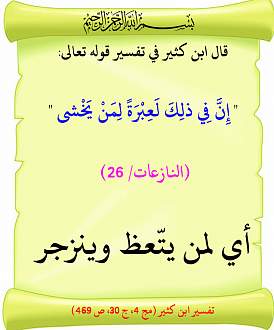 بسم الله الرحمن الرحيم
قال ابن كثير في تفسير قوله تعالى:
" إِنَّ فِي ذلِكَ لَعِبْرَةً لِمَنْ يَخْشى "
(النازعات/ 26)
أي لمن يتّعظ وينزجر
تفسير ابن كثير (مج 4، ج 30، ص 469)